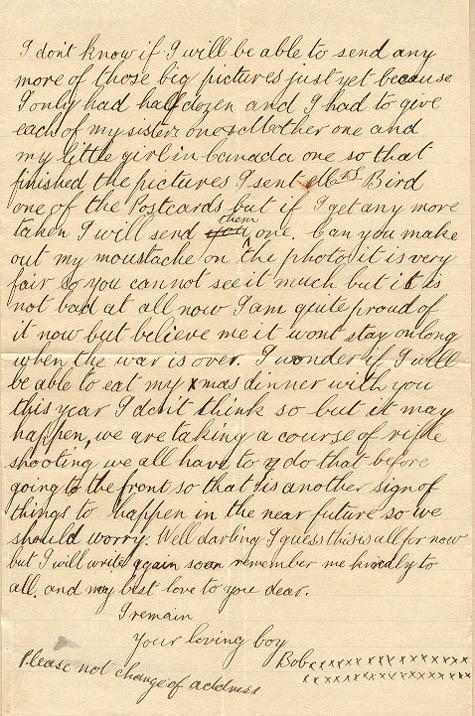 I don't know if I will be able to send any
more of those big pictures just yet because
I only had half dozen and I had to give
each of my sisters one & Mother one and
my little girl in Canada one so that
finished the pictures I sent Mrs Bird
one of the Postcards but if I get any more
taken I will send them one. Can you make
out my moustache on the photo it is very
fair so you cannot see it much but it is
not bad at all now I am quite proud of
it now but believe me it wont stay on long
when the war is over. I wonder if I will
be able to eat my xmas dinner with you
this year I don't think so but it may
happen, we are taking a course of rifle
shooting we all have to do that before
going to the front so that is another sign of
things to happen in the near future so we
should worry. Well darling I guess this is all for now
but I will write again soon remember me kindly to
all. and my best love to you dear.
I remain
Your loving boy
Bob xxxxxxxxxxxxxxx
xxxxxxxxxxxxxxx
Please not change of address